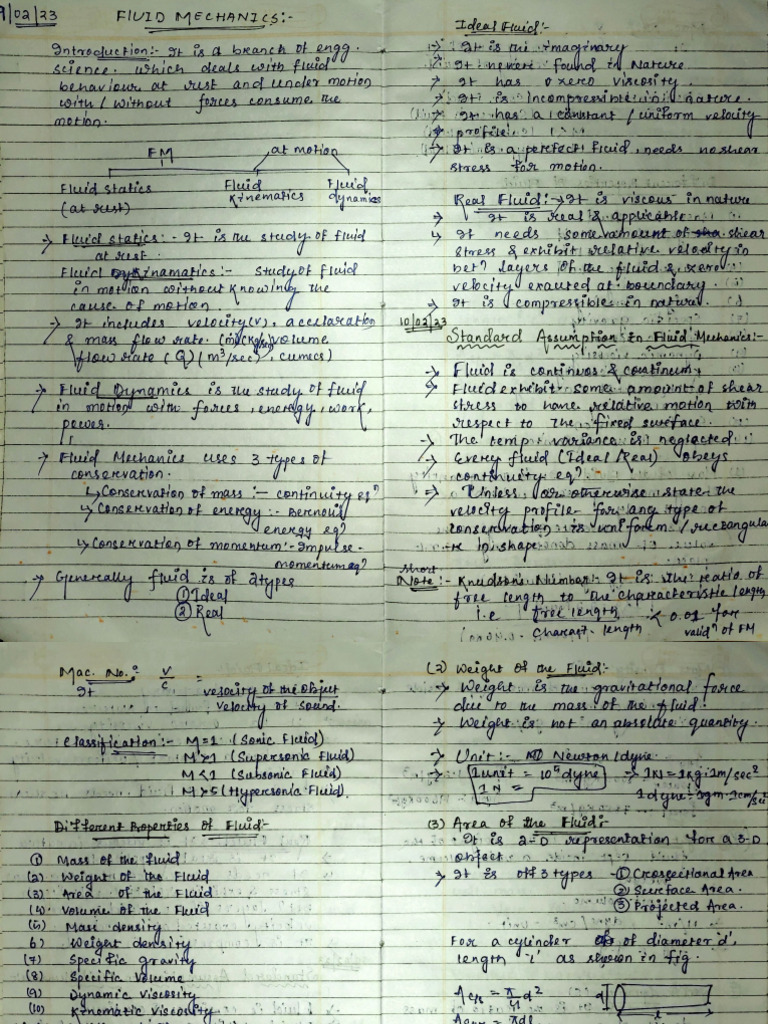 9/02/23
FLUID MECHANICS:-
Introduction:- It is a branch of engg.
science. which deals with fluid
behaviour at rest and under motion
with/without forces consume the
motion.
FM
at motion
Fluid statics
(at rest)
Fluid
kinematics
Fluid
dynamics
→ Fluid statics:- It is the study of fluid
at rest.
Fluid Kinamatics:- study of fluid
in motion without knowing the
cause of motion.
→ It includes velocity(v), accelaration
& mass flow rate. (kg/sec) volume
flow rate (Q) (m³/sec), cumecs)
→ Fluid Dynamics is the study of fluid
in motion with forces, energy, work,
power.
→ Fluid Mechanics uses 3 types of
conservation.
↳ Conservation of mass :- continuity eqⁿ
↳ Conservation of energy :- Bernoulli
energy eqⁿ
↳ Conservation of momentum:- Impulse-
momentum eqⁿ
→ Generally fluid is of 2 types
① Ideal
② Real
Ideal Fluid:-
→ It is the imaginary
→ It never found in Nature
→ It has zero viscosity.
→ It is incompressible in nature.
→ It has a constant / uniform velocity
profile.
→ It is a perfect fluid, needs no shear
stress for motion.
Real Fluid:- → It is viscous in nature
→ It is real & applicable.
↳ It needs some amount of shear
stress & exhibit relative velocity in
betⁿ layers of the fluid & zero
velocity exauted at boundary
→ It is compressible in nature.
10/02/23
Standard Assumption in Fluid Mechanics:-
→ Fluid is continuos & continum.
→ Fluid exhibit some amount of shear
stress to have relative motion with
respect to the fixed surface.
→ The temp variance is neglected.
→ Every fluid (Ideal / Real) obeys
continuity eqⁿ.
→ Unless or otherwise state the
velocity profile for any type of
conservation is uniform / rectangula
-r in shape
short
Note:- Knudson's Number:- It is the ratio of
free length to the characteristic length
i.e free length < 0.01 for
Charact. length validⁿ of FM
Mac. No.:- V/C = velocity of the object
It velocity of sound.
Classification:- M=1 (Sonic Fluid)
M>1 (Supersonic Fluid)
M<1 (Subsonic Fluid)
M>5 (Hypersonic Fluid)
Different Properties of Fluid:-
(1) Mass of the fluid
(2) Weight of the Fluid
(3) Area of the Fluid
(4) Volume of the Fluid
(5) Mass density
6) Weight density
(7) Specific gravity
(8) Specific volume
(9) Dynamic viscosity
(10) Kinematic viscosity
(2) Weight of the Fluid:-
→ Weight is the gravitational force
due to the mass of the fluid.
→ Weight is not an absolute quantity.
→ Unit:- Newton/dyne
→ 1 unit = 10⁵ dyne → 1N = 1kg·1m/sec²
1 N = 1 dyne = 1gm·1cm/sec
(3) Area of the Fluid:-
It is 2-D representation for a 3-D
object
→ It is off 3 types - ① Crossectional Area
② Surface Area.
③ Projected Area.
For a cylinder of diameter 'd',
length 'l' as shown in fig.
A c/s = π/4 d²
d
l
= πdl